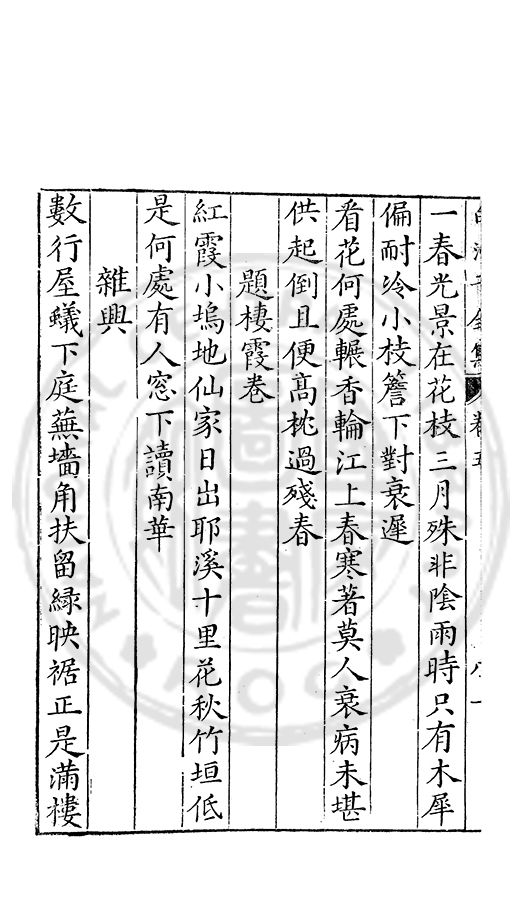 一春光景在花枝三月殊非陰雨時只有木犀
偏耐冷小枝簷下對衰遲
看花何處輾香輪江上春寒著莫人衰病未堪
供起倒且便高枕過殘春
題棲霞卷
紅霞小塢地仙家日出耶溪十里花秋竹垣低
是何處有人窓下讀南華
雜興
數行屋蟻下庭蕪墻角扶留綠映裾正是滿樓